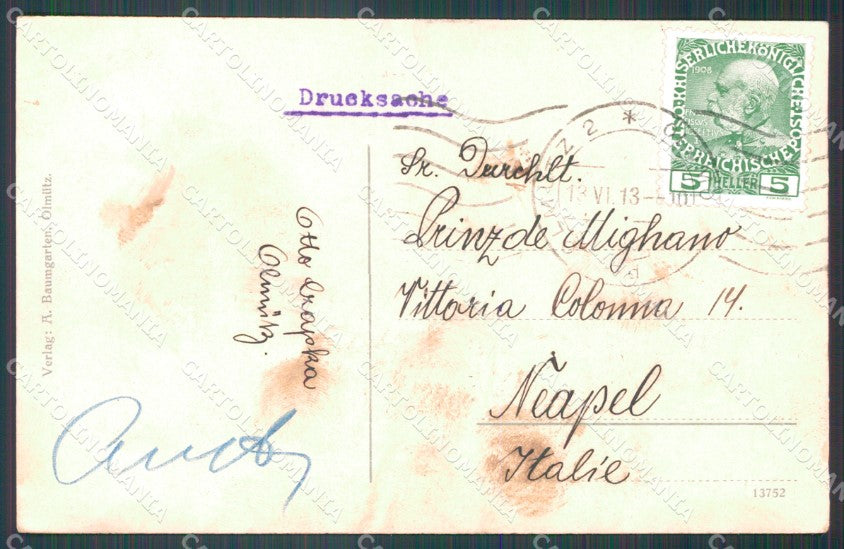 Drucksache
KAISERLICHE KÖNIGLICHE
1908
ÖSTERREICHISCHE
5 HELLER 5
13 VI. 13
Sr. Durchlt.
Prinz de Mighano
Vittoria Colonna 14.
Neapel
Italie
Otto
Olmütz.
Verlag: A. Baumgarten, Olmütz.
13752
CARTOLINOMANIA